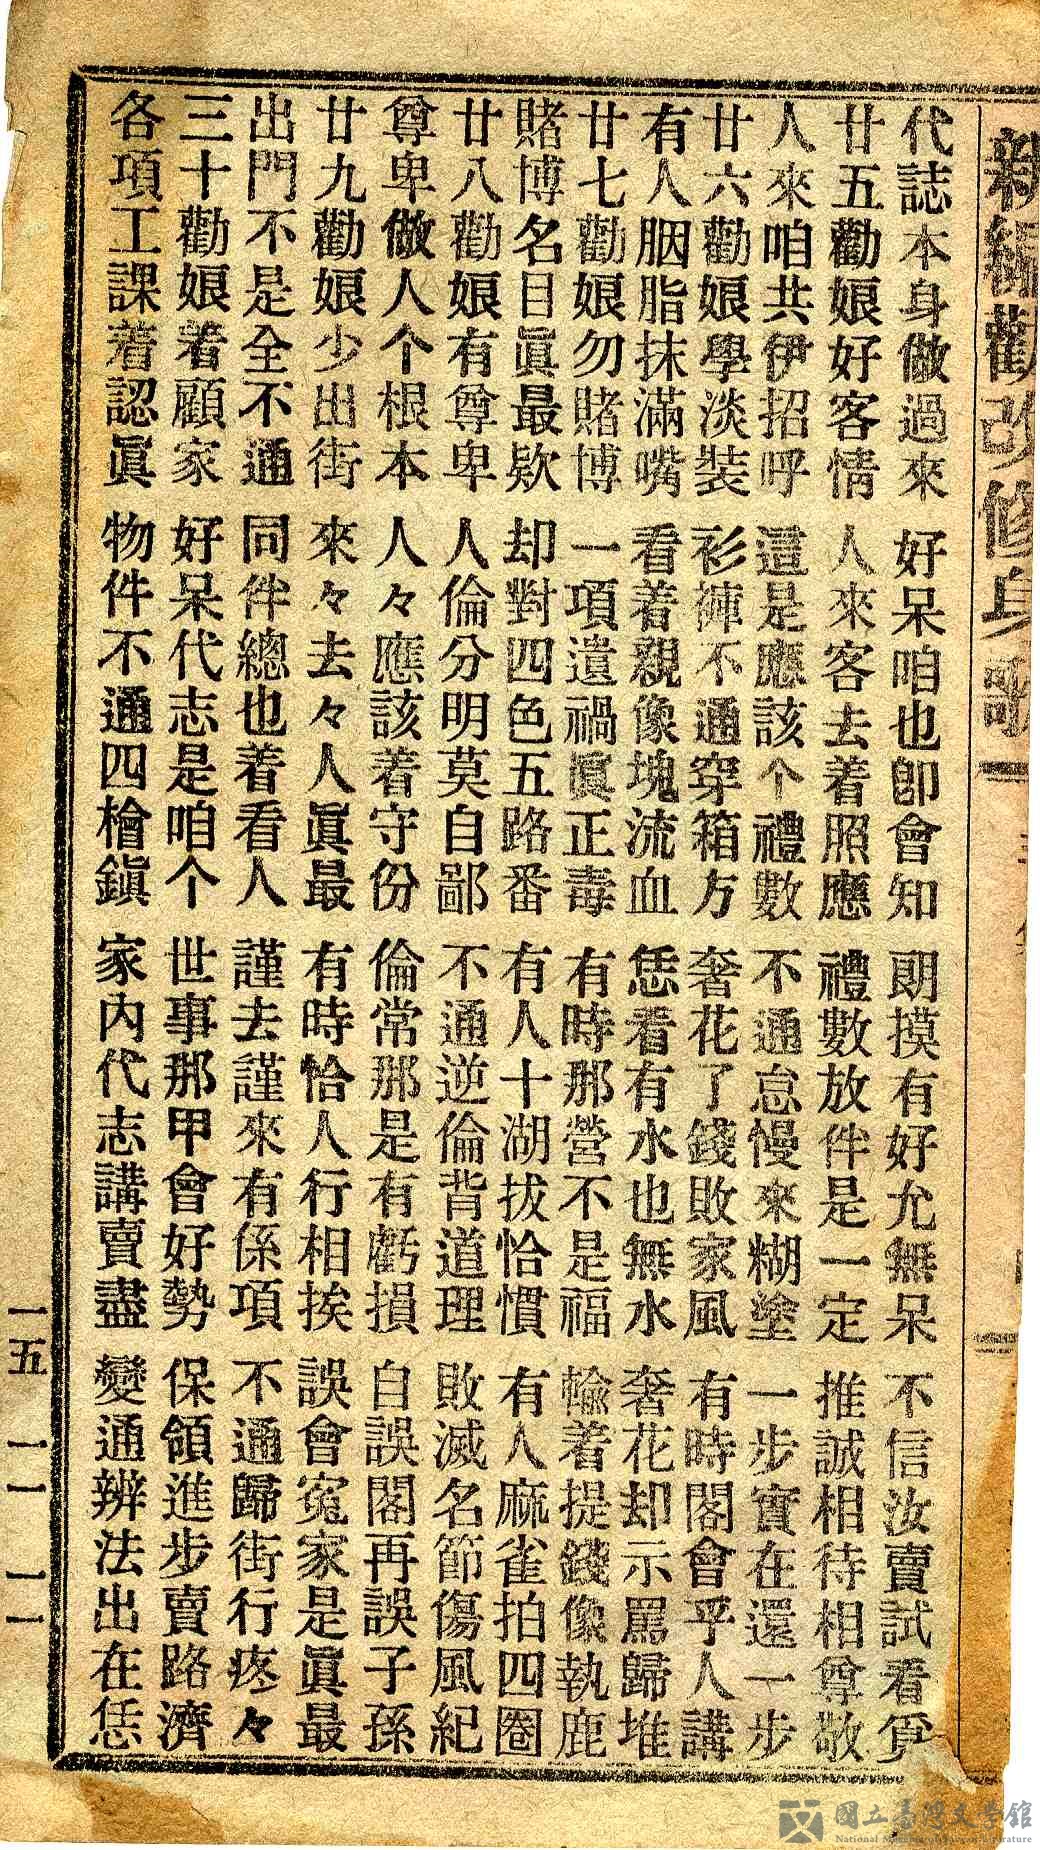 新編勸改修身歌一
代誌本身做過來　好呆咱也卽會知　朗摸有好允無呆　不信汝賣試看
廿五勸娘好客情　人來客去着照應　禮數放伴是一定　推誠相待相尊敬
人來咱共伊招呼　這是應該个禮數　不通怠慢來糊塗　一步實在還一步
廿六勸娘學淡裝　衫褲不通穿箱方　奢花了錢敗家風　有時閣會乎人講
有人胭脂抹滿嘴　看着親像塊流血　恁看有水也無水　奢花却示罵歸堆
廿七勸娘勿賭博　一項遺禍眞正毒　有時那營不是福　輸着提錢像執鹿
賭博名目眞最欵　却對四色五路番　有人十湖拔恰慣　有人麻雀拍四圈
廿八勸娘有尊卑　人倫分明莫自鄙　不通逆倫背道理　敗滅名節傷風紀
尊卑做人个根本　人々應該着守份　倫常那是有虧損　自誤閣再誤子孫
廿九勸娘少出街　來々去々人眞最　有時恰人行相挨　誤會寃家是眞最
出門不是全不通　同伴總也着看人　謹去謹來有係項　不通歸街行疼々
三十勸娘着顧家　好呆代志是咱个　世事那甲會好勢　保領進步賣路濟
各項工課着認眞　物件不通四檜鎭　家內代志講賣盡　變通辨法出在恁
一五
一一
一一
國立臺灣文學館
National Museum of Taiwan Literature